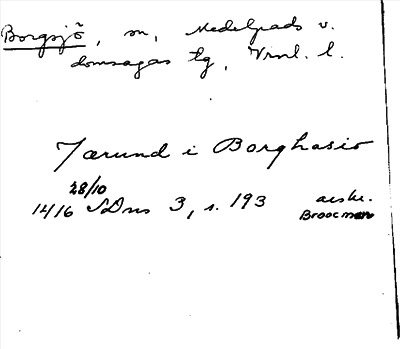 Borgsjö, sn, Medelpads v.
domsagas tg, Vrnl. l.
Jærund i Borghasio
28/10
1416 SDns 3, s. 193 avskr.
Brooocman